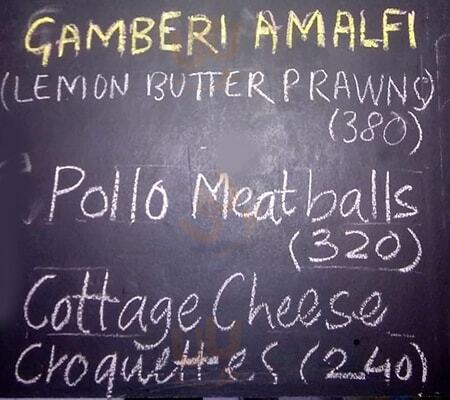 GAMBERI AMALFI
(LEMON BUTTER PRAWNS)
(380)
Pollo Meatballs
(320)
Cottage Cheese
Croquettes (240)